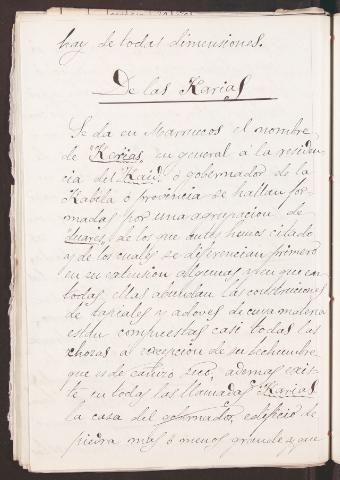 hay de todas dimensiones.
De las Karias
Se da en Marruecos el nombre
de "Kerias" en general á la residen-
cia del "Kaid" ó gobernador de la
Kabila ó provincia se hallan for-
madas por una agrupacion de
duares, de los que antes hemos citado
y de los cuales se diferencian primero
en su extension algunas y en que en
todas ellas abundan las construcciones
de tapiales y adoves de cuya materia
estan compuestas casi todas las
chozas á excepcion de su techumbre
que es de cañizo seco, ademas exis-
te, en todas las llamadas "Karias"
la casa del gobernador, edificio de
piedra mas ó menos grande y que